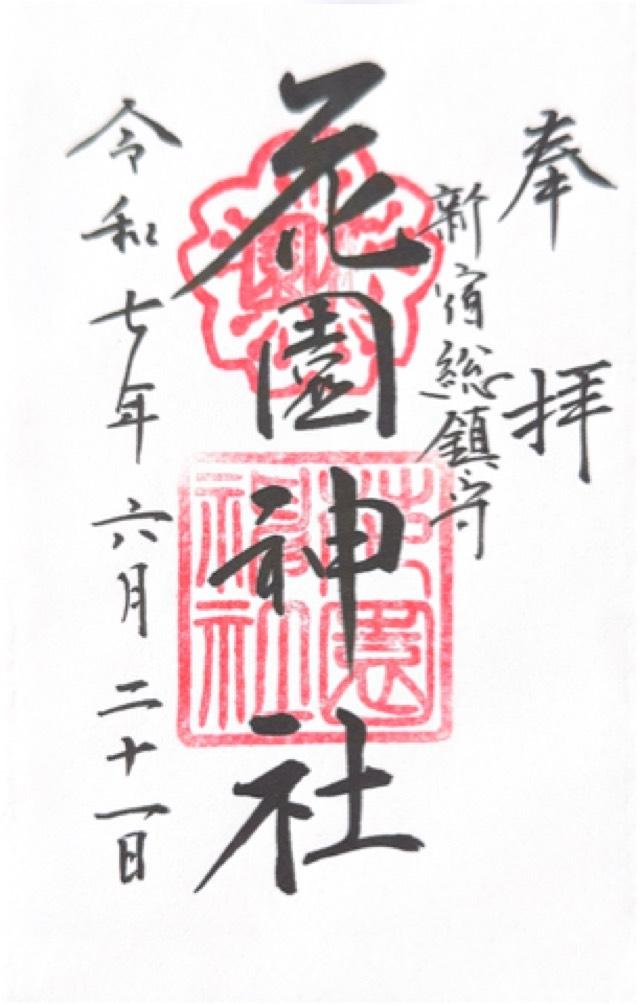 奉拝
新宿総鎮守
花園神社
花園神社
令和七年六月二十一日